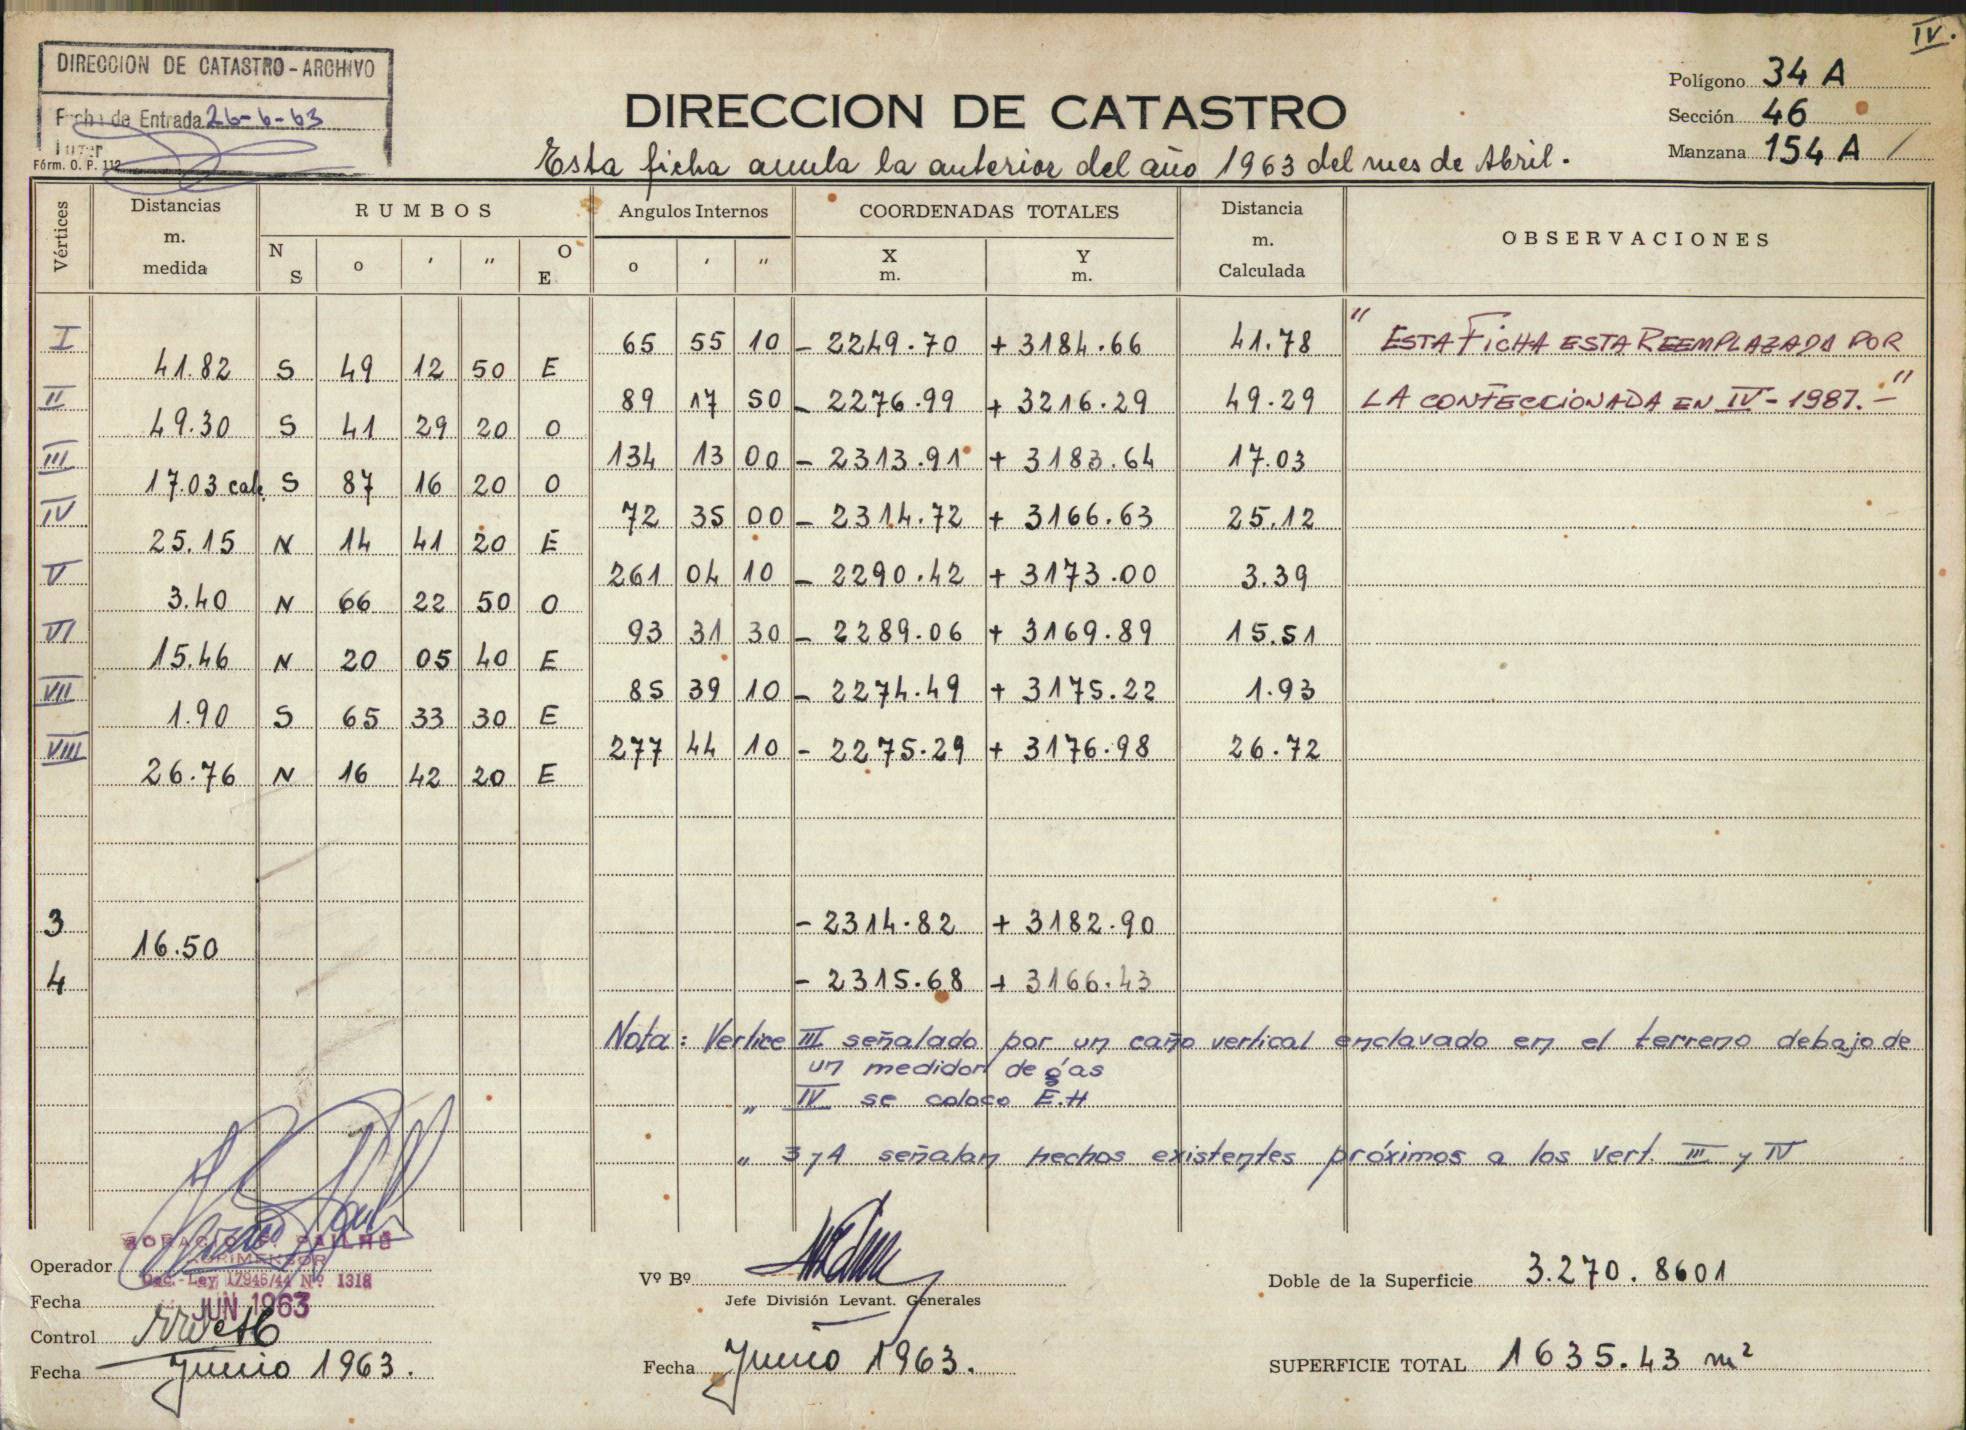 IV.
DIRECCION DE CATASTRO - ARCHIVO
Fecha de Entrada 26-6-63
Fórm. O. P. 112
DIRECCION DE CATASTRO
Esta ficha anula la anterior del año 1963 del mes de Abril.
Polígono 34 A
Sección 46
Manzana 154 A /
Vértices
Distancias m. medida
RUMBOS
N S o ' " O E
Angulos Internos
o ' "
COORDENADAS TOTALES
X m. Y m.
Distancia m. Calculada
OBSERVACIONES
I 65 55 10 - 2249.70 + 3184.66 41.78
41.82 S 49 12 50 E
II 89 17 50 - 2276.99 + 3216.29 49.29
49.30 S 41 29 20 O
III 134 13 00 - 2313.91 + 3183.64 17.03
17.03 calc. S 87 16 20 O
IV 72 35 00 - 2314.72 + 3166.63 25.12
25.15 N 14 41 20 E
V 261 04 10 - 2290.42 + 3173.00 3.39
3.40 N 66 22 50 O
VI 93 31 30 - 2289.06 + 3169.89 15.51
15.46 N 20 05 40 E
VII 85 39 10 - 2274.49 + 3175.22 1.93
1.90 S 65 33 30 E
VIII 277 44 10 - 2275.29 + 3176.98 26.72
26.76 N 16 42 20 E
" ESTA FICHA ESTA REEMPLAZADA POR
LA CONFECCIONADA EN IV - 1987.- "
3 - 2314.82 + 3182.90
16.50
4 - 2315.68 + 3166.43
Nota: Vertice III señalado por un caño vertical enclavado en el terreno debajo de
un medidor de gas
" IV se coloco E.H
" 3 y 4 señalan hechos existentes próximos a los vert. III y IV
Operador
AGRIMENSOR
Dec.-Ley 17946/44 Nº 1318
Fecha JUN 1963
Control
Fecha Junio 1963.
Vº Bº
Jefe División Levant. Generales
Fecha Junio 1963.
Doble de la Superficie 3.270.8601
SUPERFICIE TOTAL 1635.43 m²